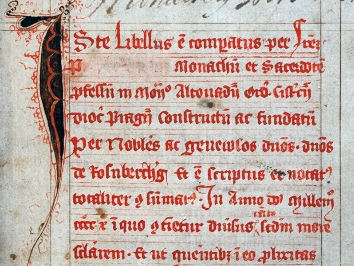 Iste Libellus ē compatus per frēm
p Monachū et Sacerdotē
pfessū in Mōⁿ Altouadū Ordīs Cistcīn
dioc̄ Pragēn constructū ac fundatū
Per Nobiles ac generosos dnōs. dnōs
de Rosnbercħg et ē scriptus et notatꝰ
totaliter ꝯsūmatꝰ. In Anno dō Millemo
cccc x in quo ꝯtietur diuisus scdm more
scdarem. et ut quentibꝫ in eo plixitas